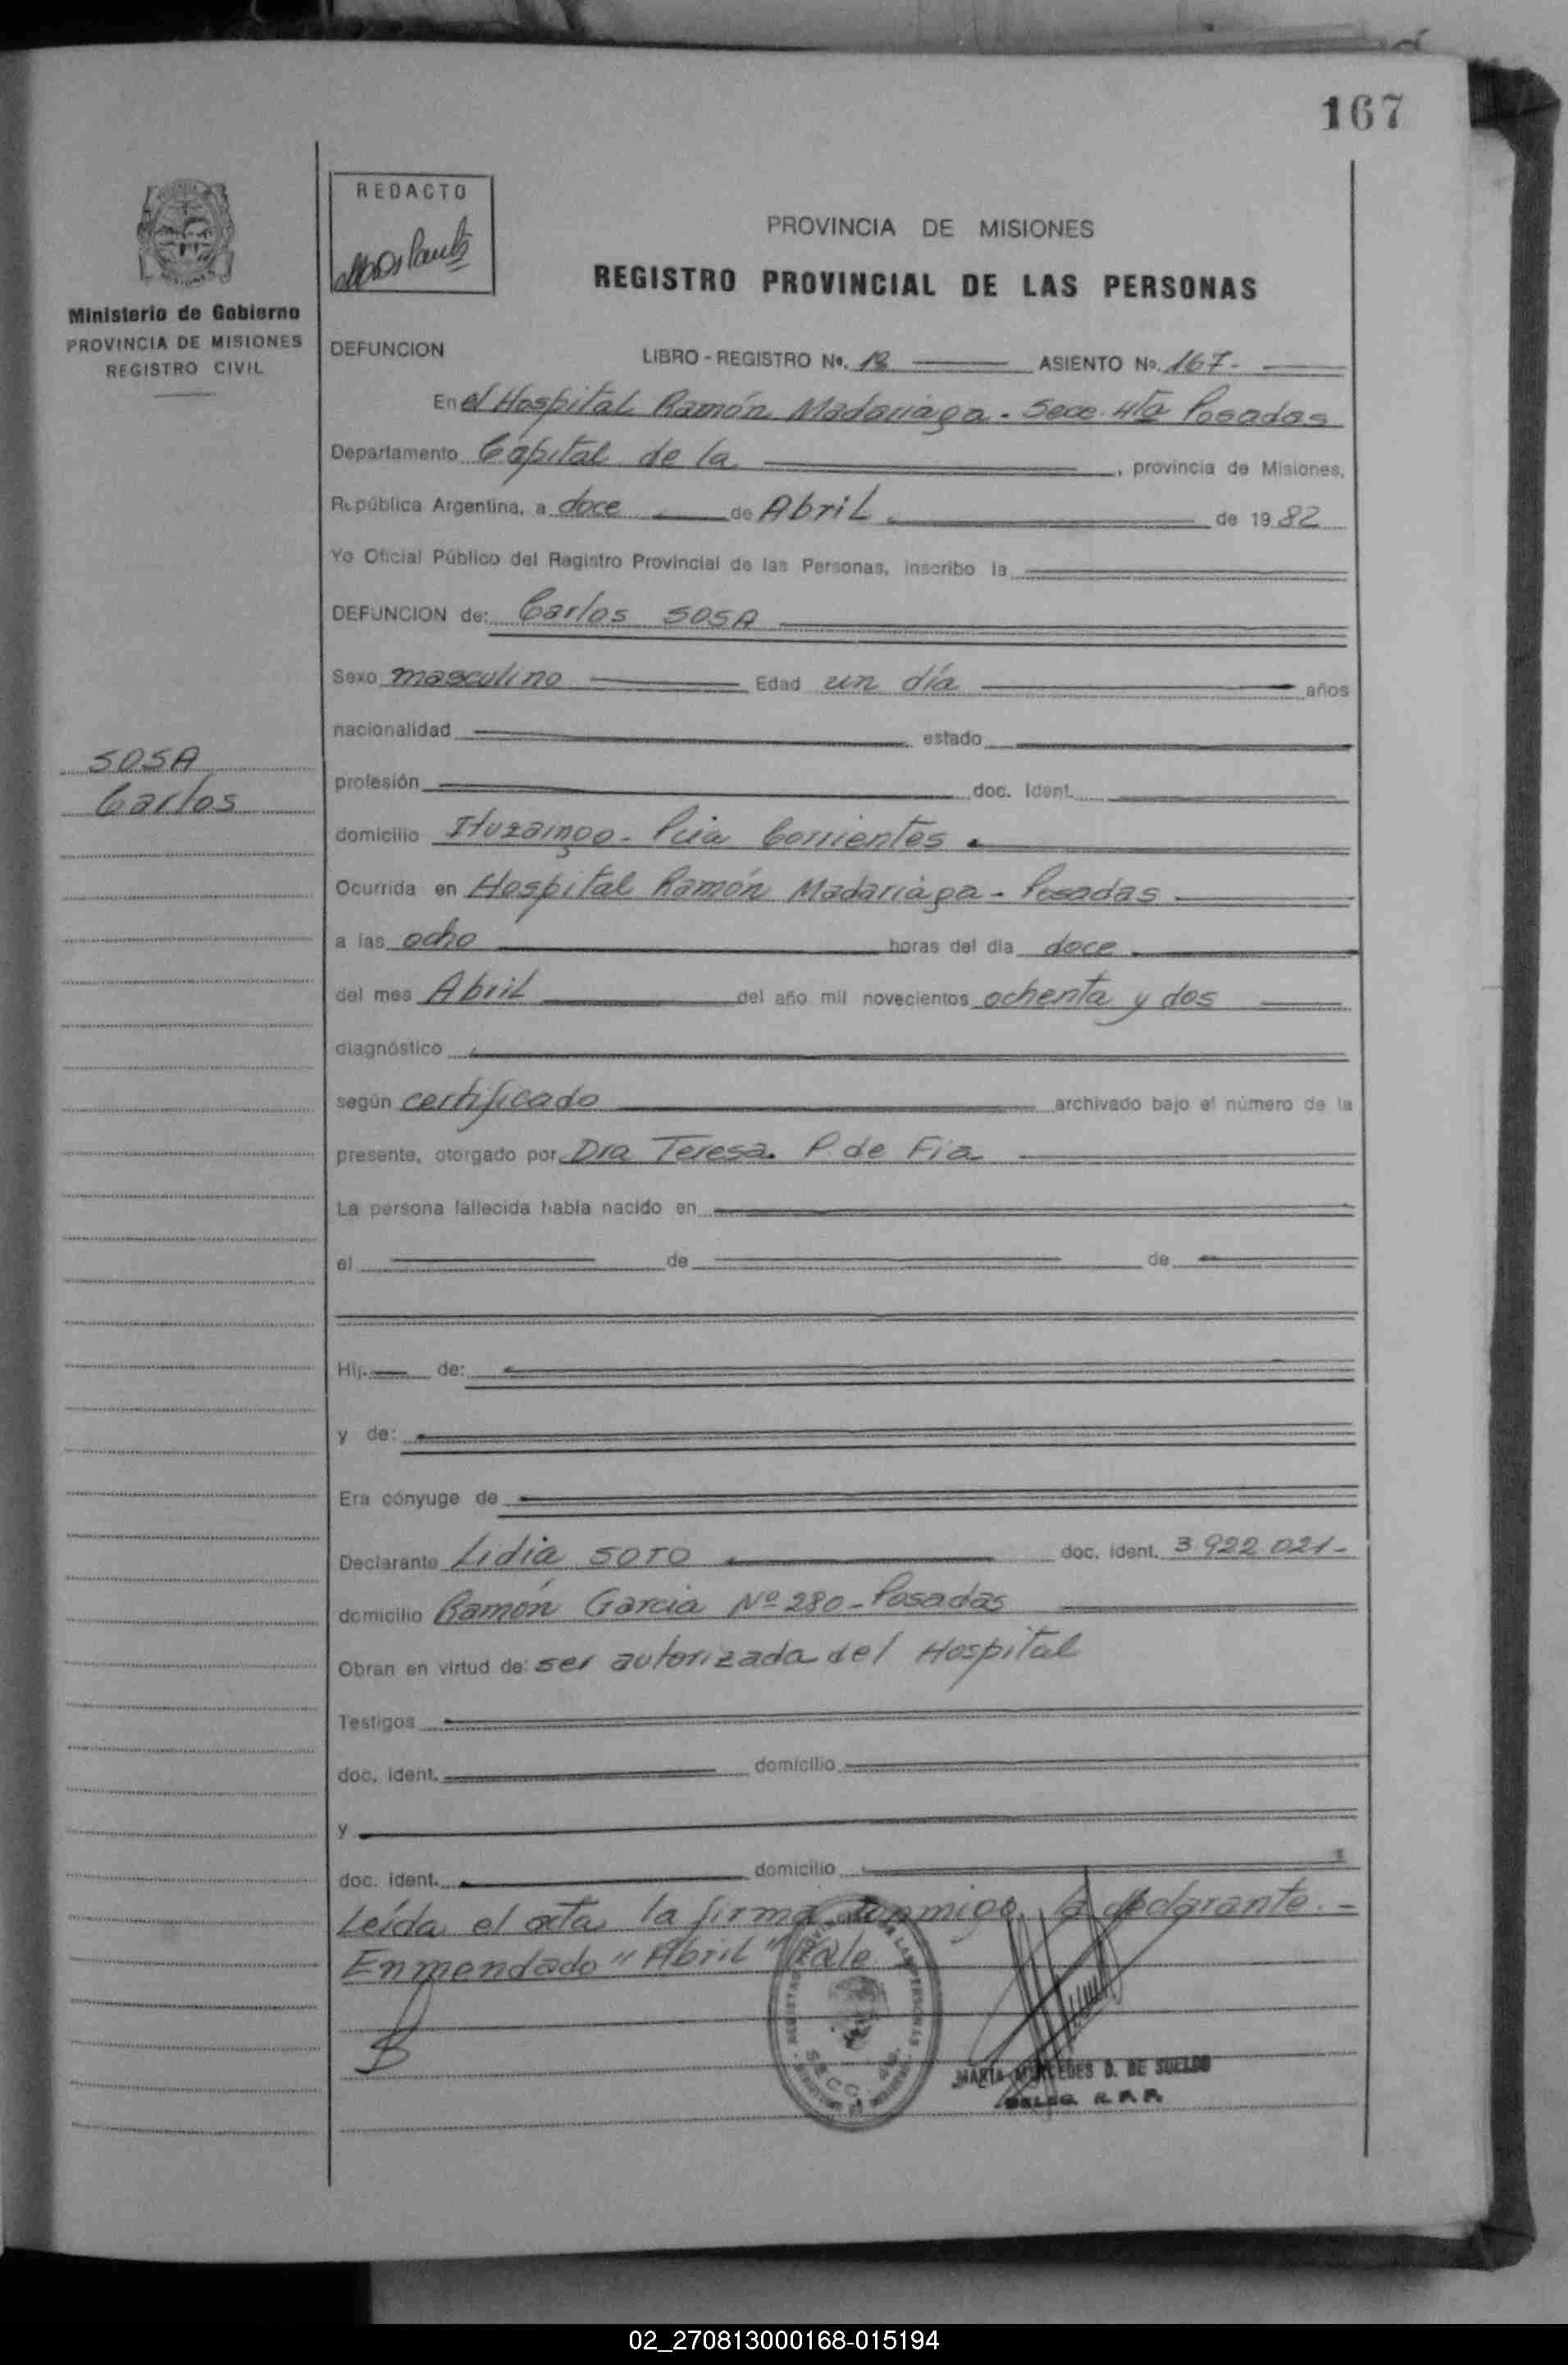 167
REDACTO
PROVINCIA DE MISIONES
REGISTRO PROVINCIAL DE LAS PERSONAS
Ministerio de Gobierno
PROVINCIA DE MISIONES
REGISTRO CIVIL
DEFUNCION LIBRO - REGISTRO Nº. 18 ASIENTO Nº. 167-
En el Hospital Ramón Madariaga - Secc. 4ta Posadas
Departamento Capital de la , provincia de Misiones.
República Argentina, a doce de Abril de 1982
Yo Oficial Público del Registro Provincial de las Personas, inscribo la
DEFUNCION de: Carlos SOSA
Sexo masculino Edad un día años
nacionalidad estado
SOSA
Carlos
profesión doc. Ident.
domicilio Ituzaingo - Pcia Corrientes
Ocurrida en Hospital Ramón Madariaga - Posadas
a las ocho horas del día doce
del mes Abril del año mil novecientos ochenta y dos
diagnóstico
según certificado archivado bajo el número de la
presente, otorgado por Dra Teresa P. de Fia
La persona fallecida había nacido en
el de de
Hij. de:
y de:
Era cónyuge de
Declarante Lidia SOTO doc. ident. 3 922 021-
domicilio Ramón Garcia Nº 280 - Posadas
Obran en virtud de: ser autorizada del Hospital
Testigos
doc. ident. domicilio
y
doc. ident. domicilio
Leída el acta la firma conmigo la declarante. -
Enmendado "Abril" Vale
MARIA MERCEDES D. DE SUELDO
DELEG. R. P. P.
02_270813000168-015194